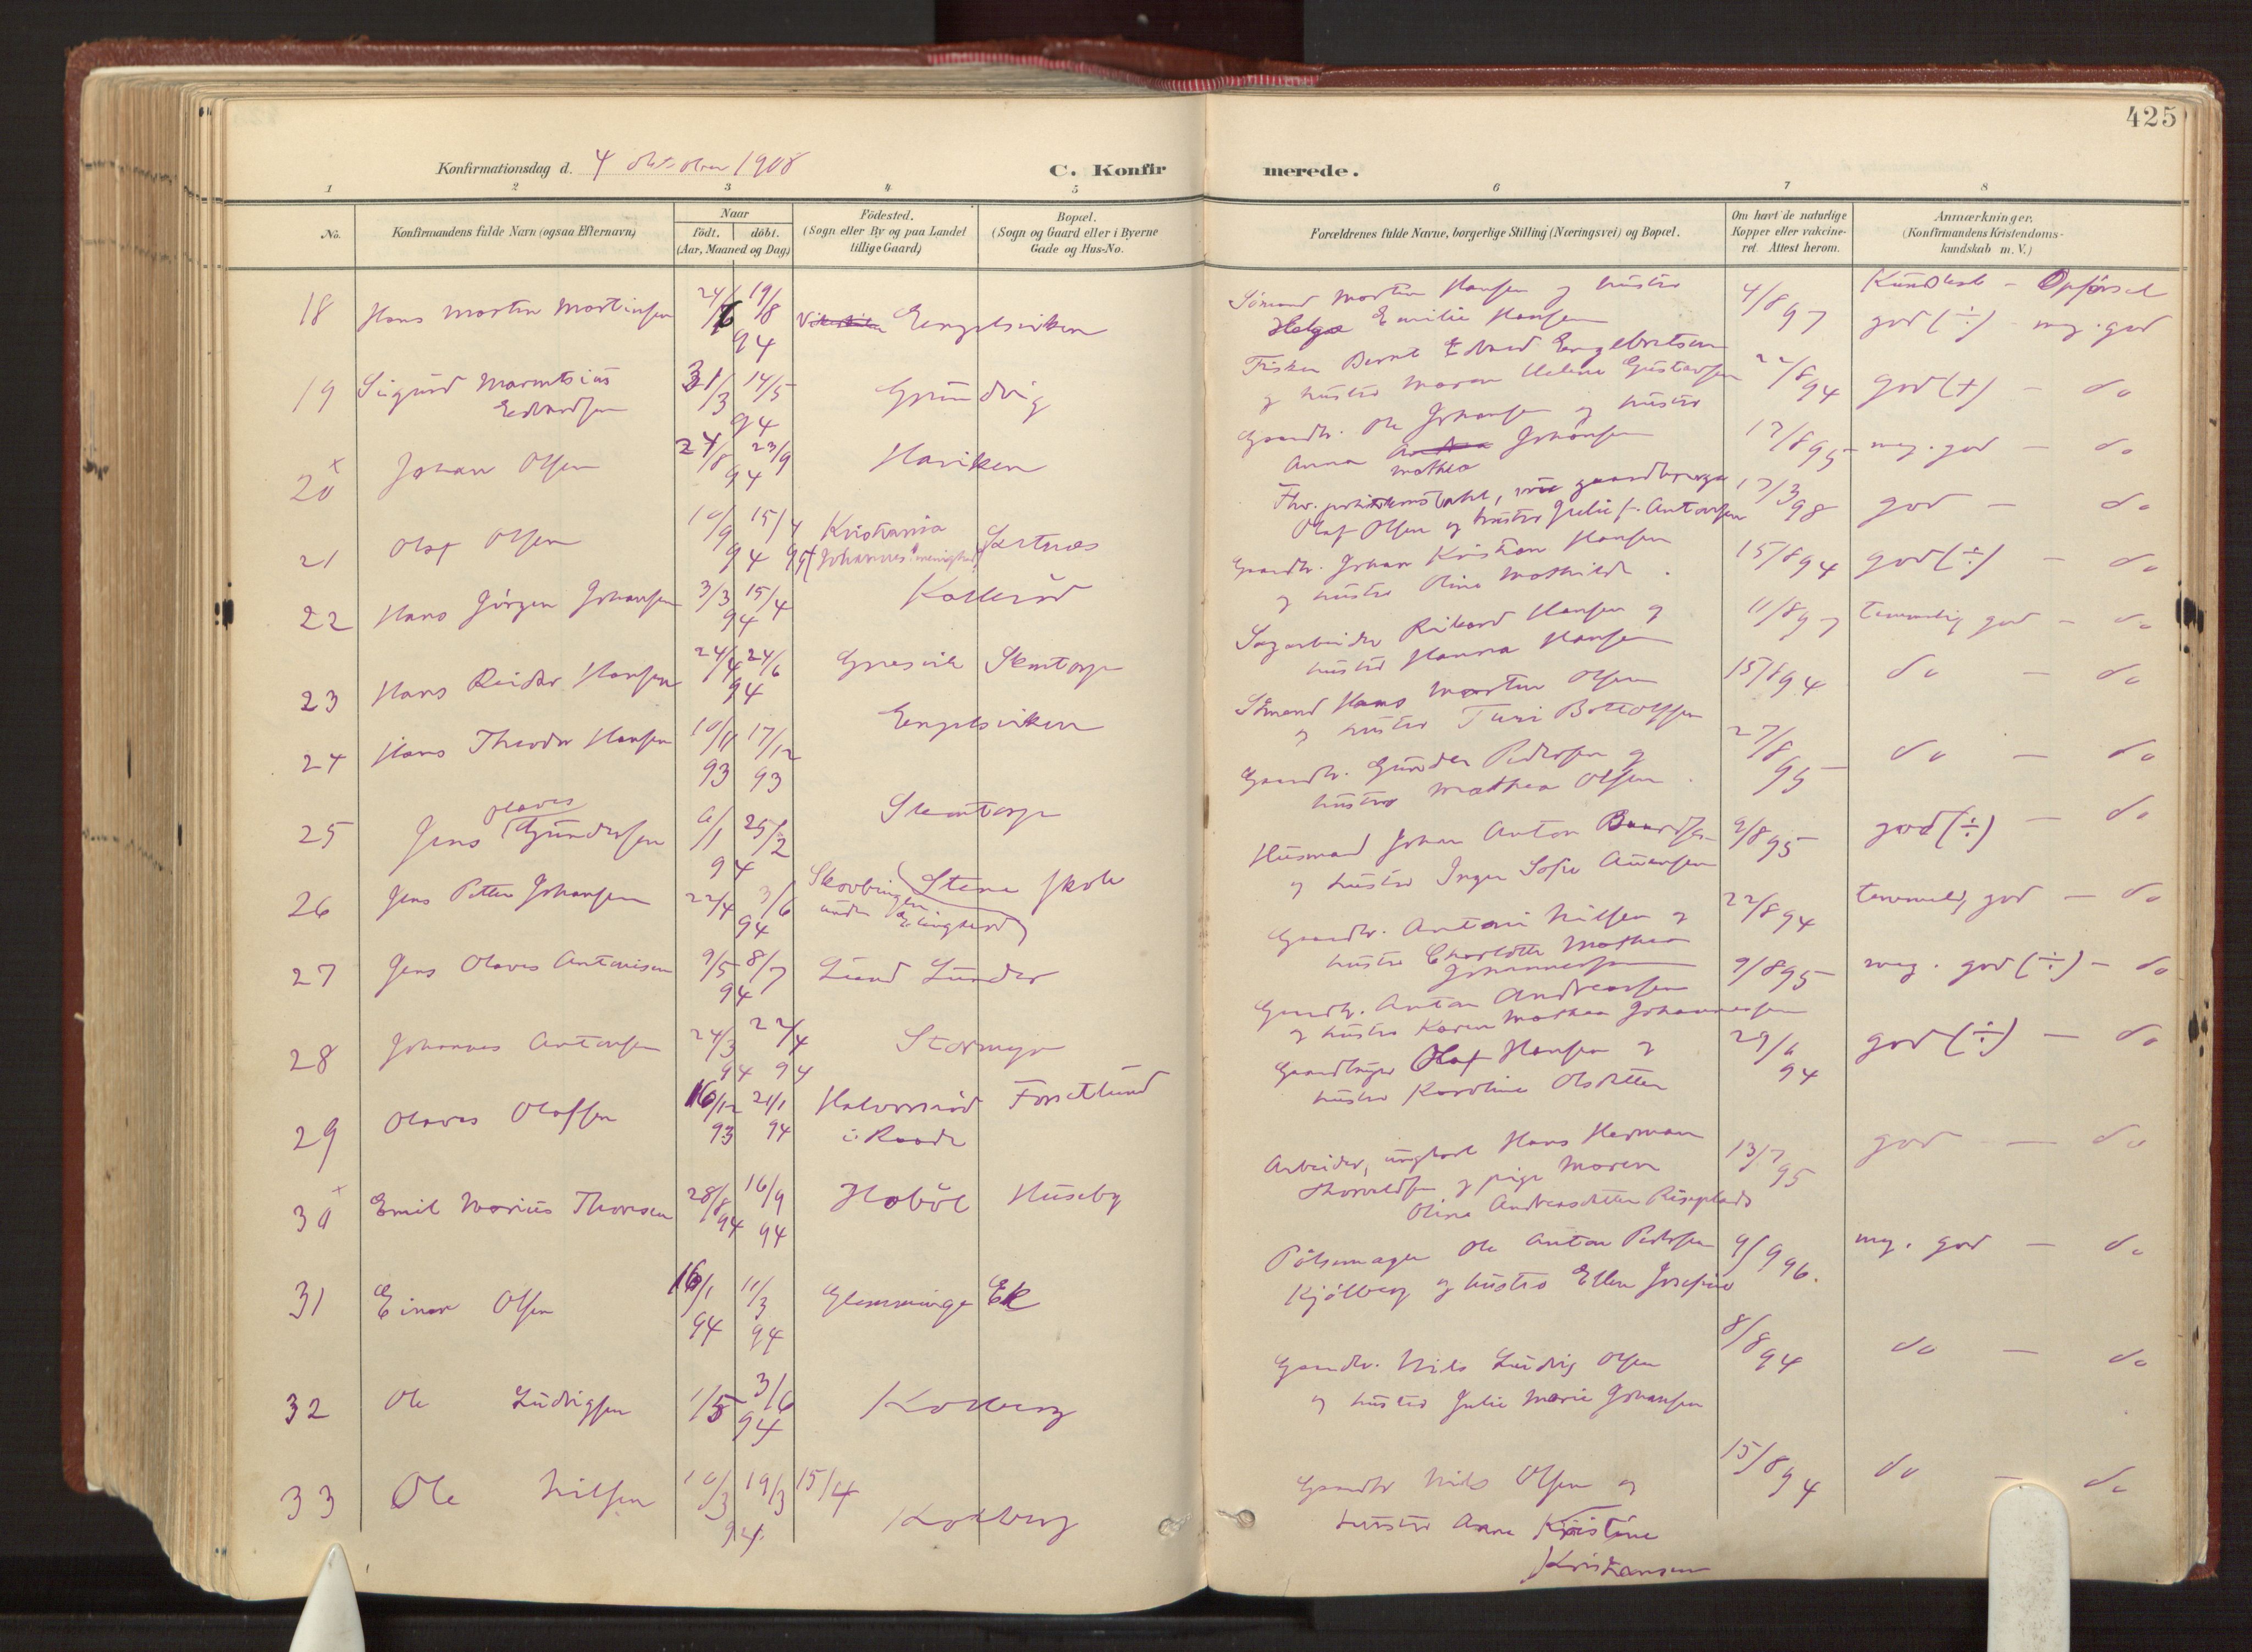 425
Konfirmationsdag d. 4 oktober 1908
C. Konfirmerede.
1 2 3 4 5 6 7 8
No.
Konfirmandens fulde Navn (ogsaa Efternavn)
Naar
født. døbt.
(Aar, Maaned og Dag)
Fødested.
(Sogn eller By og paa Landet
tillige Gaard)
Bopæl.
(Sogn og Gaard eller i Byerne
Gade og Hus-No.
Forældrenes fulde Navne, borgerlige Stilling (Næringsvei) og Bopæl.
Om havt de naturlige
Kopper eller vakcine-
ret. Attest herom.
Anmærkninger,
(Konfirmandens Kristendoms-
kundskab m. V.)
Kundskab - Opførsel
18 Hans Martin Martinsen 24/6 19/8 94 Engelsviken
Sømand Martin Hansen og hustru
Helga Emilie Hansen
4/8 97 god (÷) - mg. god
19 Sigurd Marentsius
Edvardsen
31/3 14/5 94 Grundvig
Fisker Bernt Edvard Engelbretsen
og hustru Maren Helene Gustavsen
22/8 94 god (+) - do
20 x Johan Olsen 24/8 23/9 94 Haviken
Gaardbr. Ole Johansen og hustru
Anna Mathea Johansen
17/8 95 meg. god - do
21 Olaf Olsen 10/9 94 15/4 95 Kristiania
(Johannes menighed)
Sartnæs
Olaf Olsen og hustru Julie f. Antonsen
17/3 98 god - do
22 Hans Jørgen Johansen 3/3 15/4 94 Kallerød
Gaardbr. Johan Kristian Hansen
og hustru Oline Mathilde
15/8 94 god (÷) - do
23 Hans Reidar Hansen 24/4 24/6 94 Gresvik Slentorp
Sagarbeider Rikard Hansen og
hustru Hanna Hansen
11/8 97 temmelig god - do
24 Hans Theodor Hansen 10/11 93 17/12 93 Engelsviken
Sømand Hans Martin Olsen
og hustru Turi Bottolfsen
15/8 94 do - do
25 Jens Olaves Gundersen 6/1 25/2 94 Slentorp
Gaardbr. Gunder Pedersen og
hustru Mathea Olsen
27/8 95 do - do
26 Jens Petter Johansen 22/4 3/6 94 Skovbringen
under Elingaard
Stene skole
Husmand Johan Anton
og hustru Inger Sofie
9/8 95 god (÷) - do
27 Jens Olaves Antonisen 9/5 8/7 94 Lund Lunder
Gaardbr. Antoni Nilsen og
hustru Charlotte Mathea
Johannessen
22/8 94 temmelig god - do
28 Johannes Antonsen 24/3 94 22/4 94 Stormyr
Gaardbr. Anton Andreassen
og hustru Karen Mathea Johannessen
9/8 95 meg. god (÷) - do
29 Olaves Olafsen 16/12 93 21/1 94 Halvorsrød
i Raade
Forsetlund
Gaardbruger Olaf Hansen og
hustru Karoline Olsdatter
29/6 94 god (÷) - do
30 x Emil Marius Thoresen 28/8 94 16/9 94 Hobøl Huseby
Arbeider, ungkarl Hans Herman
Thorvaldsen og pige Maren
Oline Andreasdatter
13/7 95 god - do
31 Einar Olsen 16/1 94 11/3 94 Glemminge Ek
Pølsemager Ole Anton Pedersen
Kjølberg og hustru Ellen Josefine
9/9 96. mg. god - do
32 Ole Ludvigsen 1/5 3/6 94 Kolberg
Gaardbr. Nils Ludvig Olsen
og hustru Julie Marie Johansen
8/8 94 do - do
33 Ole Nilsen 10/3 19/3 15/4 94. Kolberg
Gaardbr Nils Olsen og
hustru Anna Kristine
Kristiansen
15/8 94 do - do